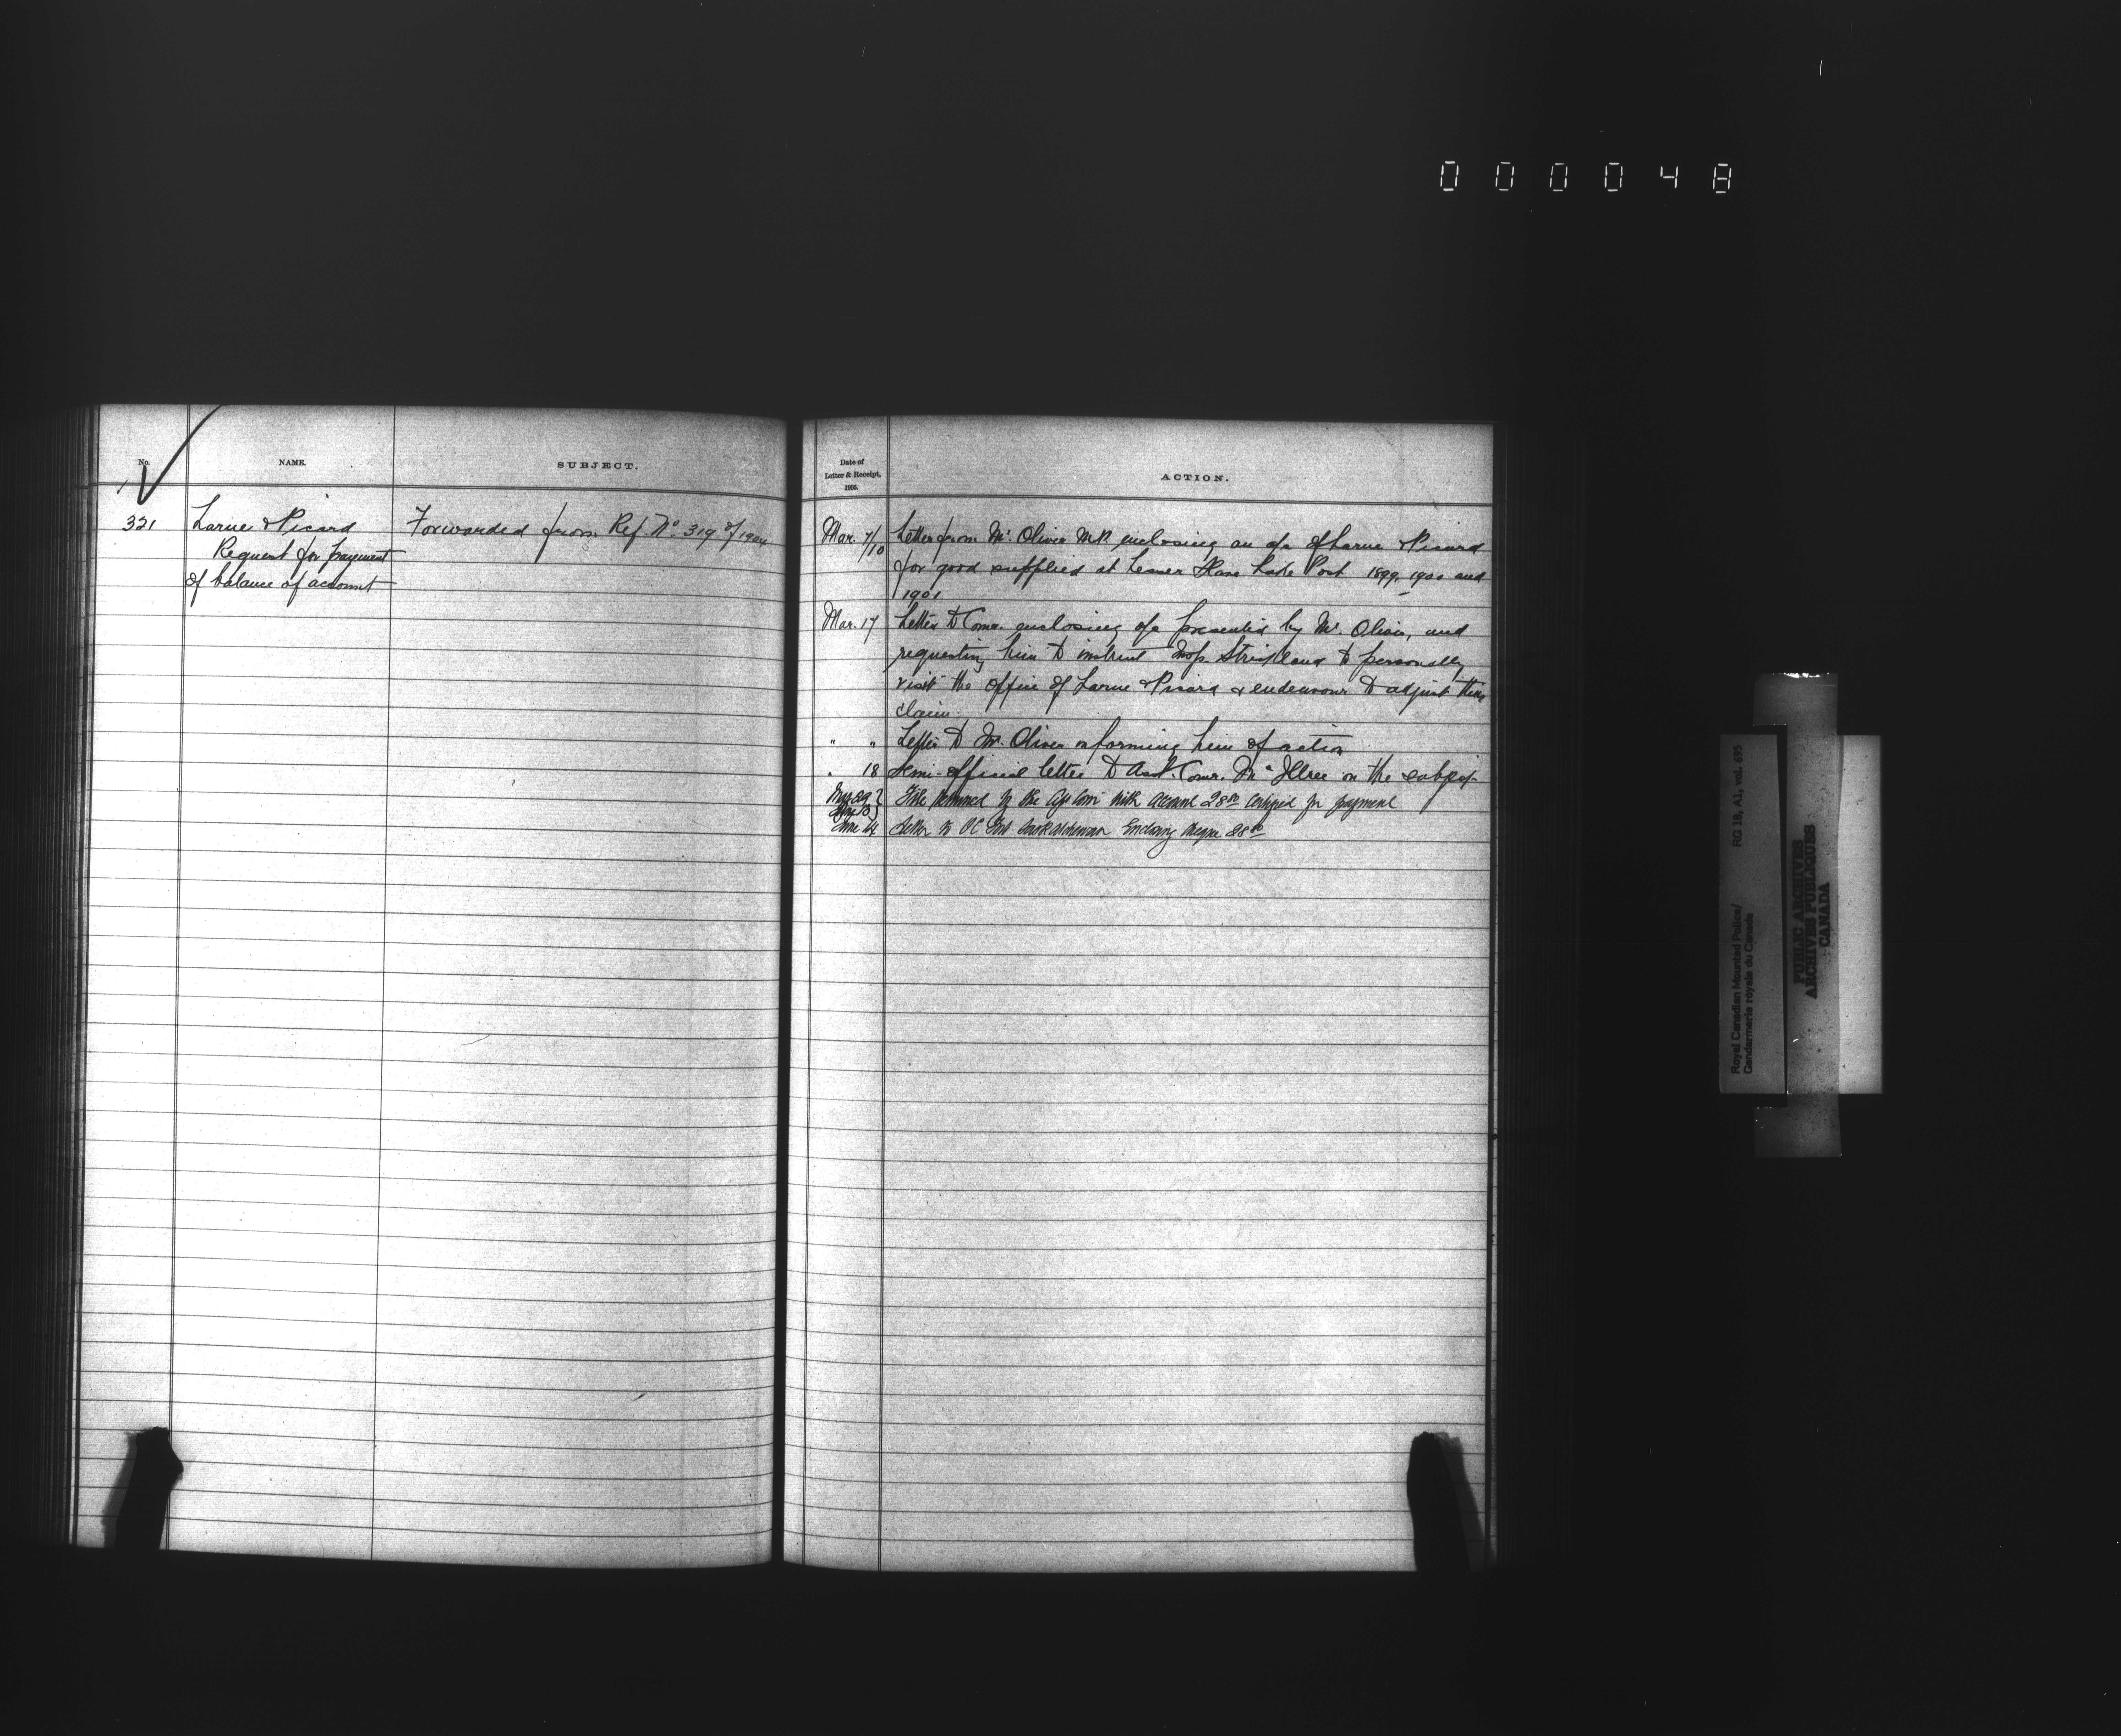 000048
No.
NAME.
SUBJECT.
321
Larue & Picard
Request for payment
of balance of account
Forwarded from Ref. No 319 of 1904
Date of
Letter & Receipt,
1905.
ACTION.
Mar. 7/10 Letter from Mr. Oliver M.P. enclosing an a/c of Larue & Picard
for good supplied at Lesser Slave Lake Post 1899, 1900 and
1901
Mar. 17 Letter to Comr. enclosing a/c presented by Mr. Oliver, and
requesting him to instruct Insp. Strickland to personally
visit the office of Larue & Picard & endeavour to adjust their
claim.
" " Letter to Mr. Oliver informing him of action
" 18 Semi-official letter to Asst. Comr. McIllree on the subject
File returned by the with account 28.00 certified for payment
June 14 Letter to OC Fort Saskatchewan Enclosing cheque 28.00
Royal Canadian Mounted Police/
Gendarmerie royale du Canada
RG 18, A1, vol. 635
PUBLIC ARCHIVES
ARCHIVES PUBLIQUES
CANADA